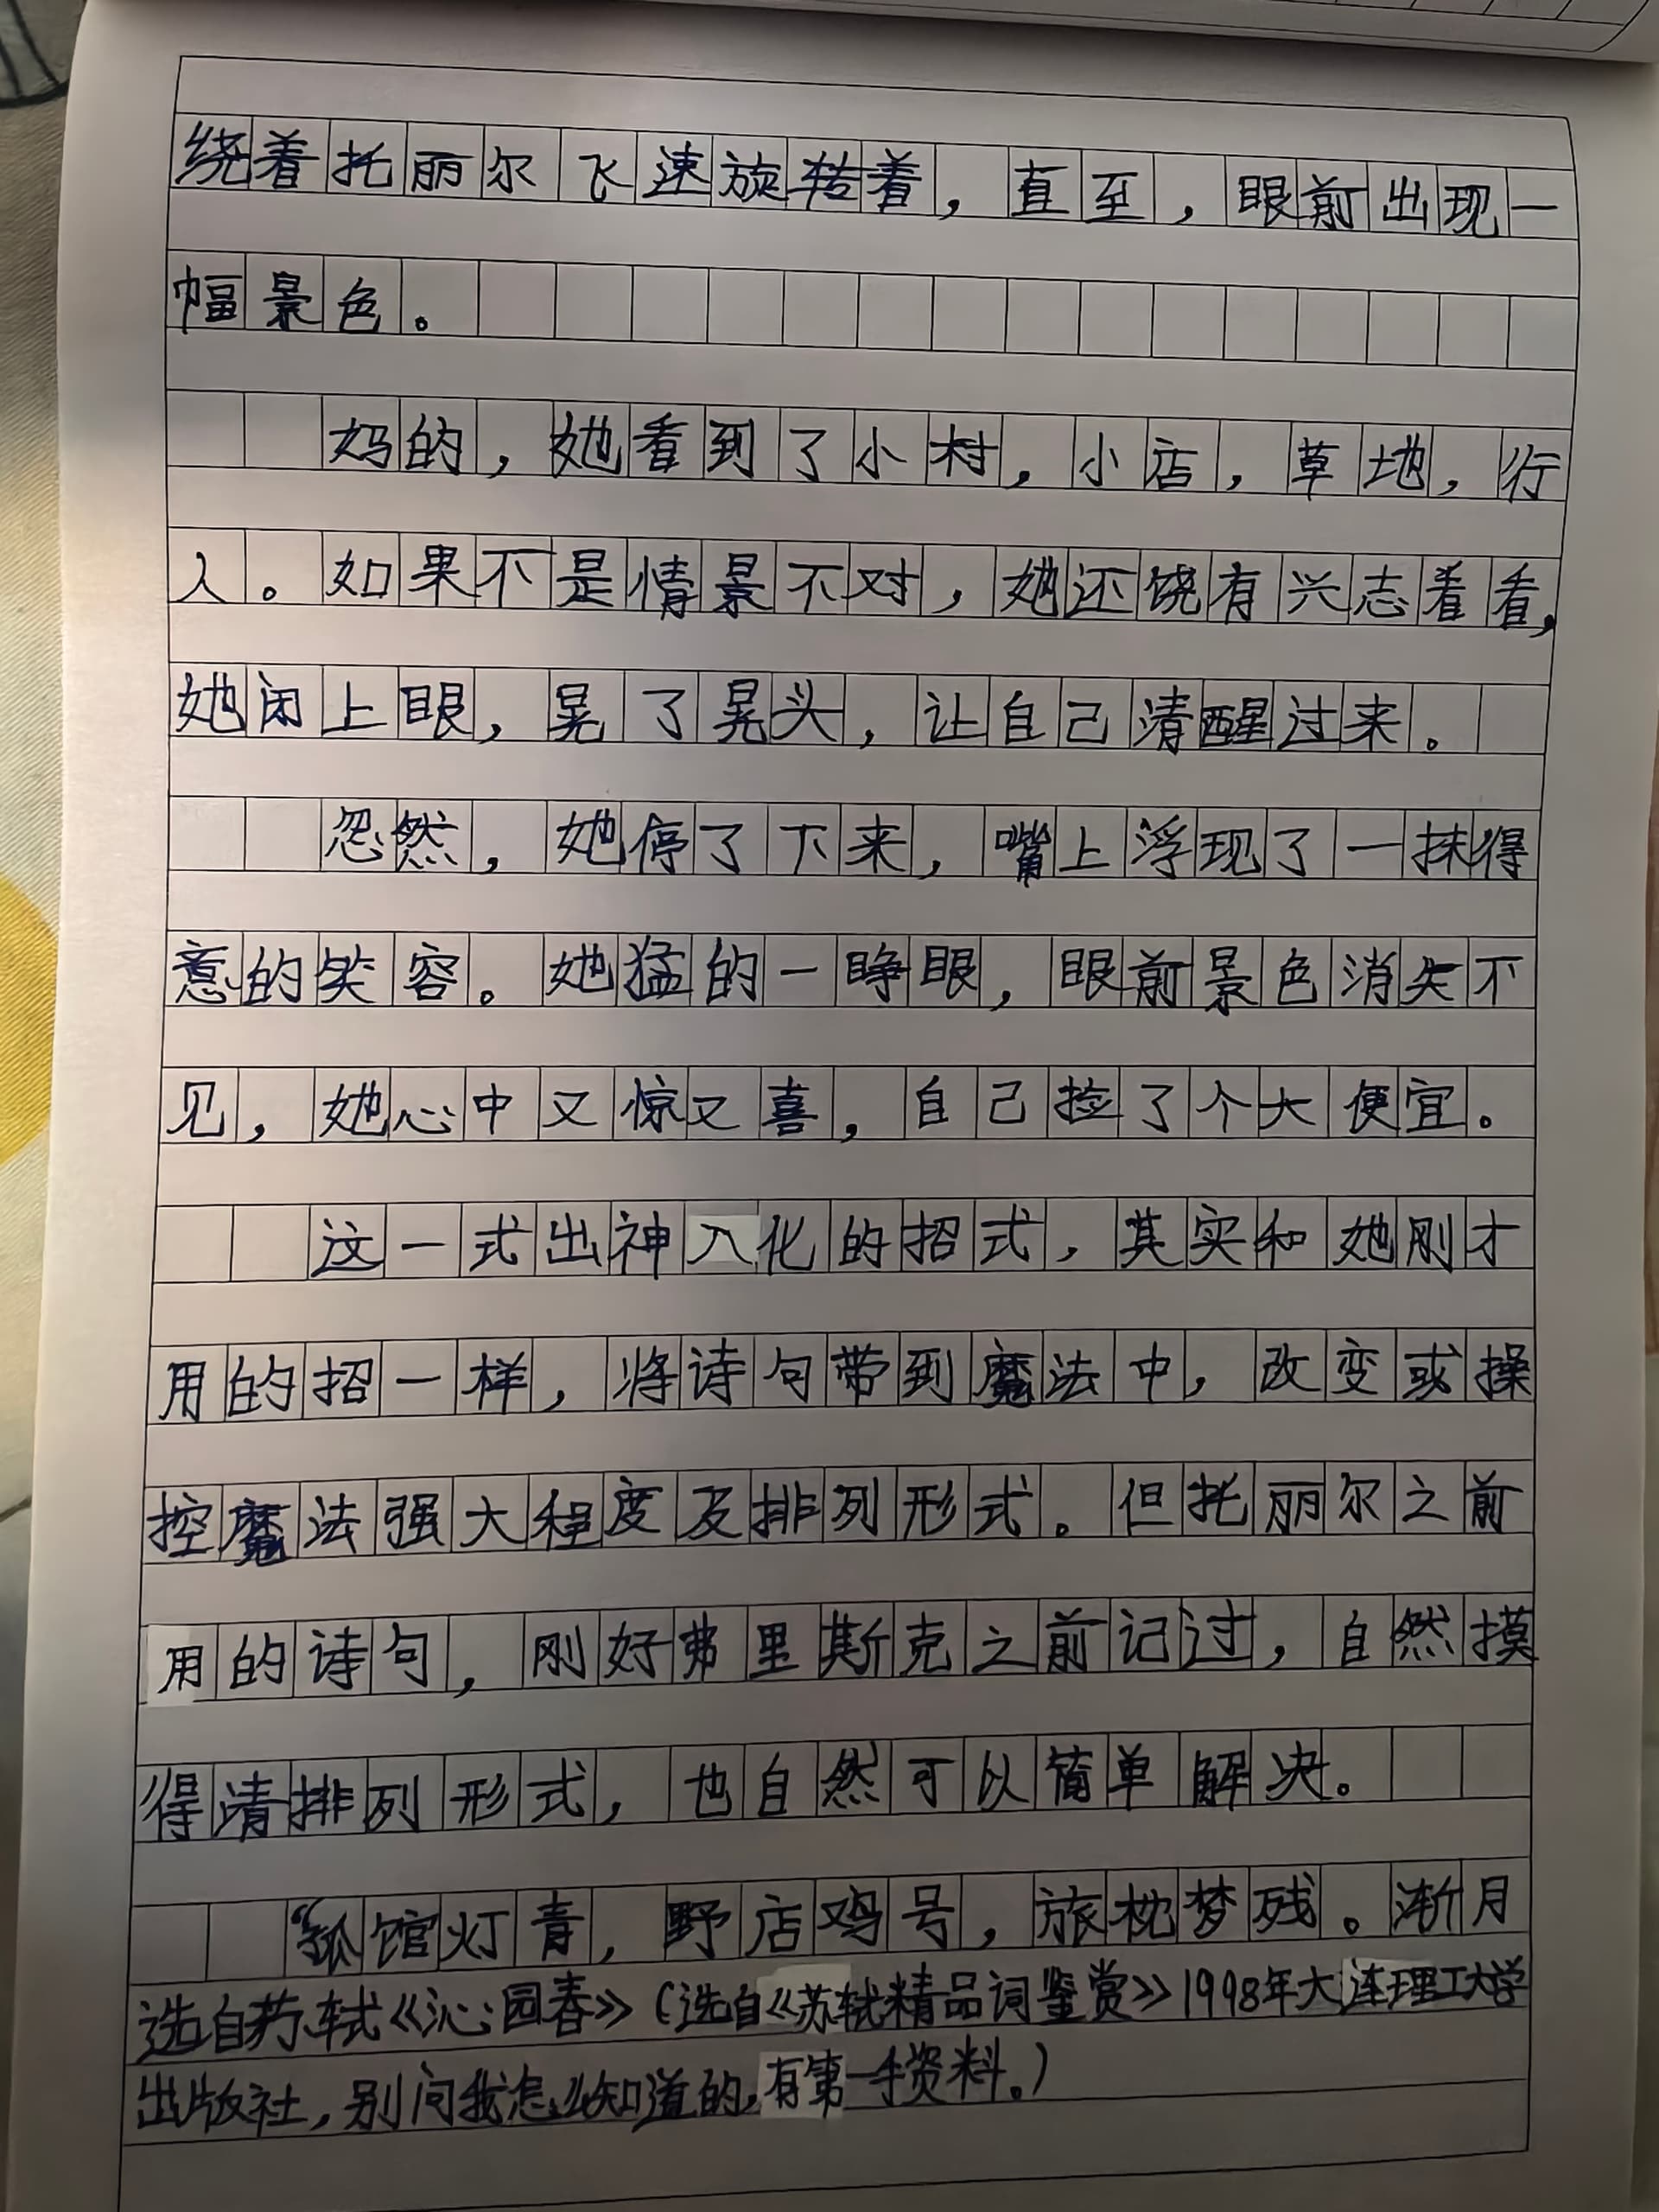 绕着托丽尔飞速旋转着，直至，眼前出现一
幅景色。
妈的，她看到了小村，小店，草地，行
人。如果不是情景不对，她还饶有兴志看看，
她闭上眼，晃了晃头，让自己清醒过来。
忽然，她停了下来，嘴上浮现了一抹得
意的笑容。她猛的一睁眼，眼前景色消失不
见，她心中又惊又喜，自己捡了个大便宜。
这一式出神入化的招式，其实和她刚才
用的招一样，将诗句带到魔法中，改变或操
控魔法强大程度及排列形式。但托丽尔之前
用的诗句，刚好弗里斯克之前记过，自然摸
得清排列形式，也自然可以简单解决。
“孤馆灯青，野店鸡号，旅枕梦残。渐月
选自苏轼《沁园春》（选自《苏轼精品词鉴赏》1998年大连理工大学
出版社，别问我怎么知道的，有第一手资料。）